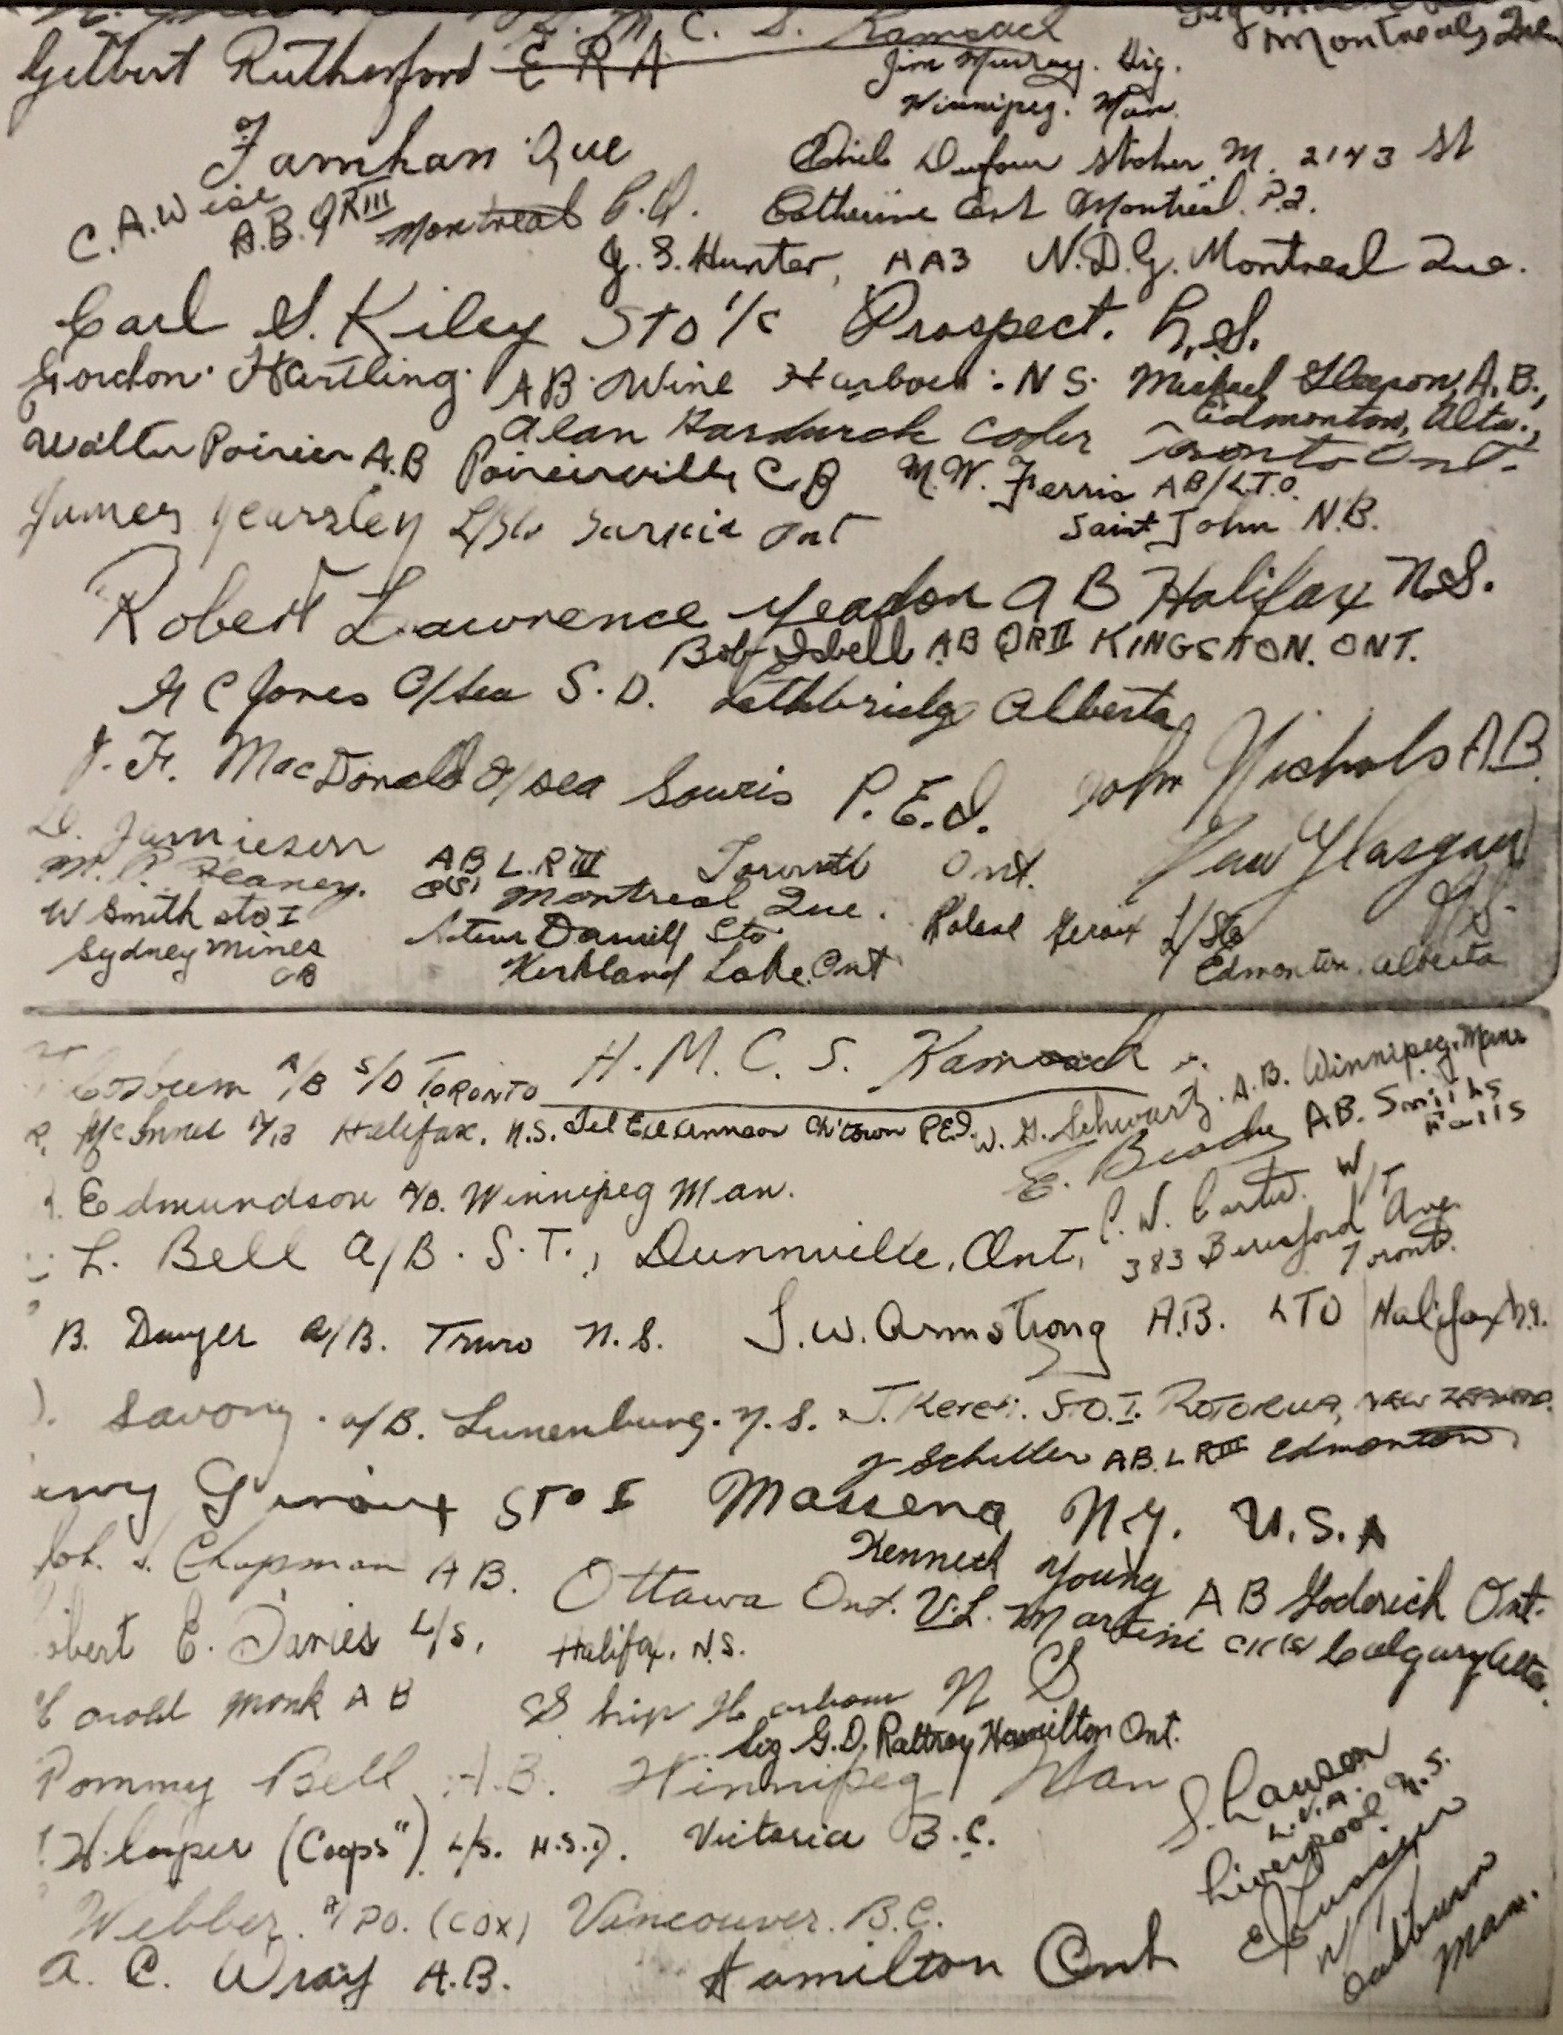 H. M. C. S. Kamsack
Montreal, Que
Gilbert Rutherford E R A
Jim Murray. Sig.
Winnipeg. Man.
Farnham Que
Dufour Stoker M. 2143 St
Catherine East Montreal. P.Q.
C. A. Wise
A.B. QRIII Montreal P.Q.
J. S. Hunter, AA3 N.D.G. Montreal Que.
Carl S. Kiley Sto 1/c Prospect. N.S.
Gordon Hartling. AB. Wine Harbour. N S.
Michael Gleeson, A.B.,
Edmonton, Alta.,
Alan Coder Toronto Ont.
Walter Poirier A.B Poirierville C B
M. W. Ferris AB/LT.O.
Saint John N.B.
James Yearsley L/Sto Sarnia Ont
Robert Lawrence Yeadon A B Halifax N.S.
Bob Isbell AB QRII KINGSTON. ONT.
G C Jones O/Sea S.D. Lethbridge Alberta
J. F. MacDonald O/Sea Souris P.E.I.
John Nichols A.B.
New Glasgow
N.S.
D. Jamieson AB L.R III Toronto Ont.
M. P. Heaney. Montreal Que.
W Smith sto I
Sydney Mines
CB
Sto
Kirkland Lake. Ont
L/Sto
Edmonton. Alberta
H. M. C. S. Kamsack
A/B S/D TORONTO
McInnes A/B Halifax. N.S.
Ch'town P.E.I.
W. G. Schwartz. A.B. Winnipeg. Man
E. AB. Smiths
Falls
Edmundson A/B. Winnipeg Man.
C. W. Carter. W/T
383 Beresford Ave.
Toronto.
L. Bell A/B. S.T., Dunnville, Ont.
B. Dwyer A/B. Truro N.S.
J. W. Armstrong A.B. LTO Halifax N.S.
Savory. A/B. Lunenburg. N.S.
STO. I. ROTORUA, NEW ZEALAND.
J Schiller AB. LRIII Edmonton
Giroux STO I Massena N.Y. U.S.A
Chapman A B. Ottawa Ont.
Kenneth Young A B Goderich Ont.
V. L. Martini Calgary Alta.
E. Davies L/S, Halifax, N.S.
Monk A B Ship Harbour N S
Sig G. D. Rattray Hamilton Ont.
Tommy Bell A.B. Winnipeg Man
H. Cooper ("Coops") L/S. H.S.D. Victoria B.C.
S. Lawson
L.V.A.
Liverpool N.S.
Webber. A/PO. (COX) Vancouver. B.C.
W/T
Oakburn
Man.
A. C. Wray A.B. Hamilton Ont